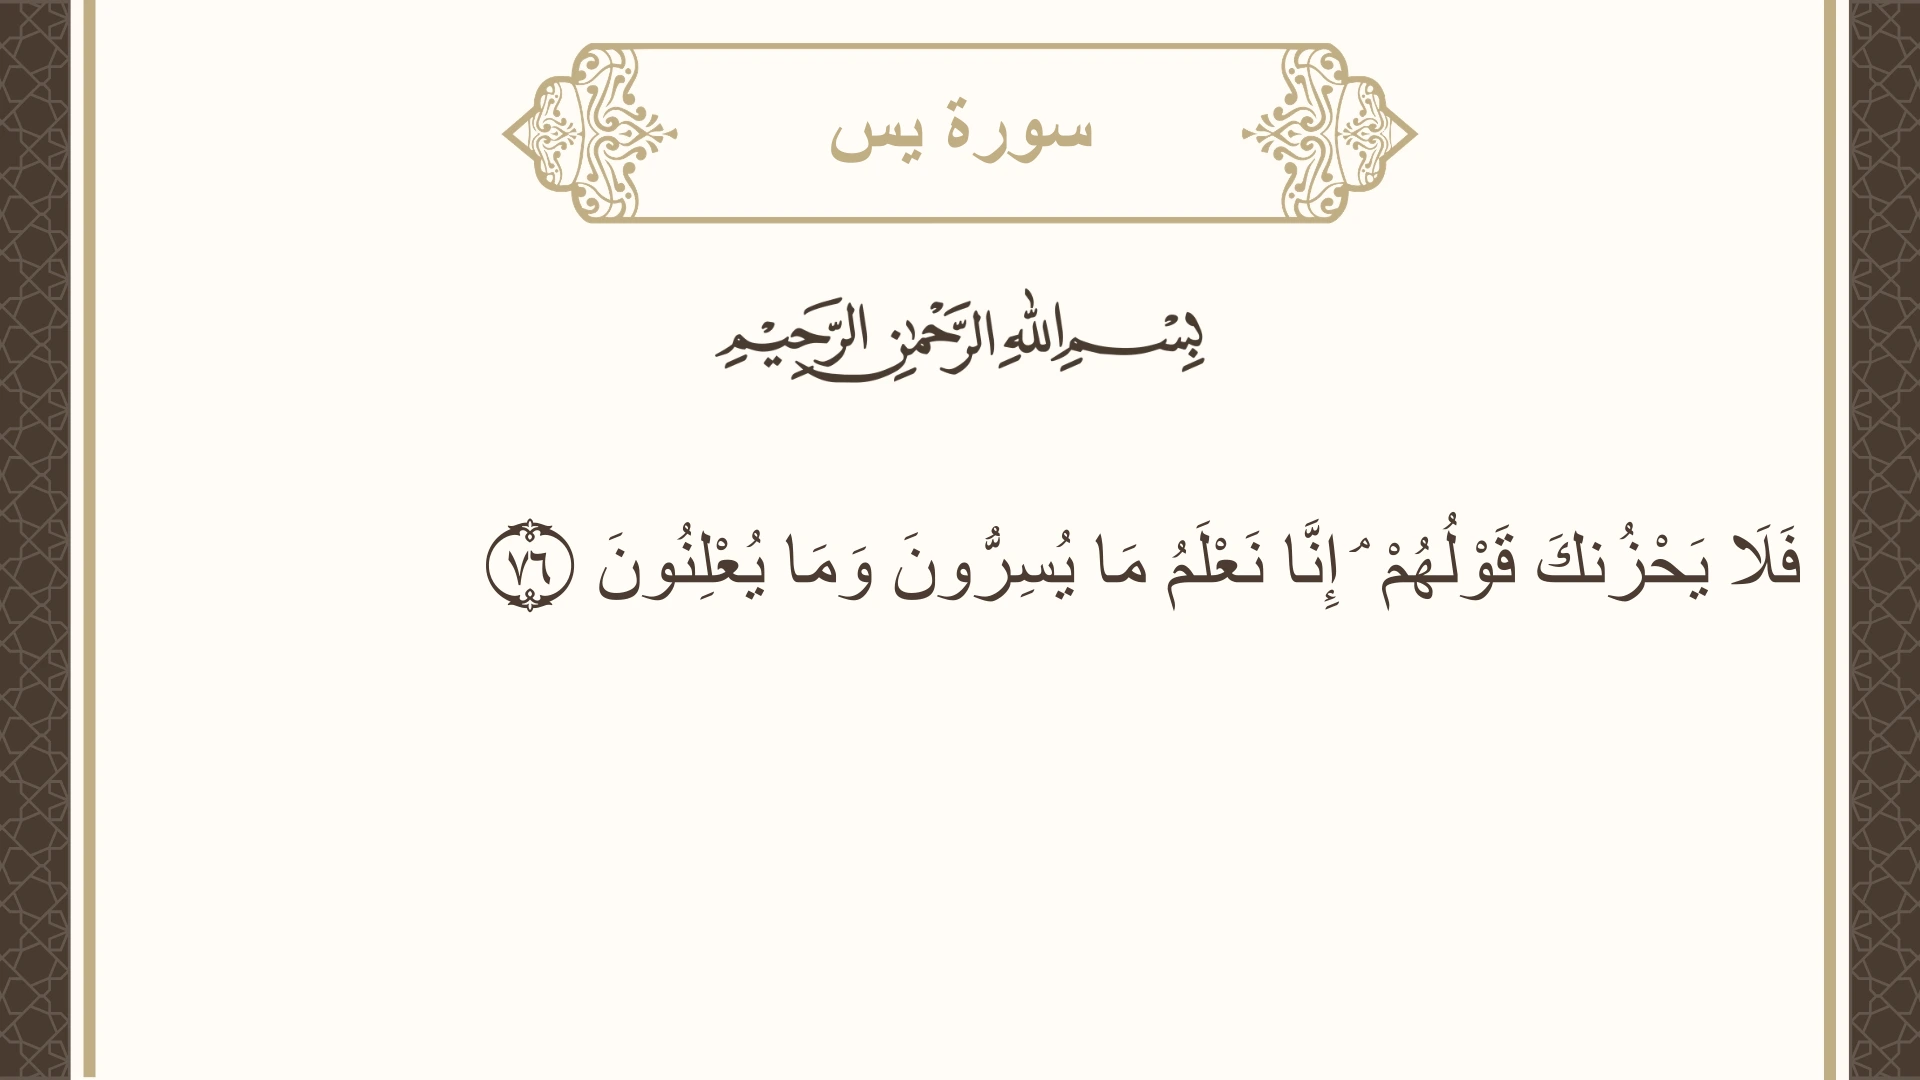 سورة يس
بِسْمِ اللهِ الرَّحْمٰنِ الرَّحِيْمِ
فَلَا يَحْزُنكَ قَوْلُهُمْ ۘ إِنَّا نَعْلَمُ مَا يُسِرُّونَ وَمَا يُعْلِنُونَ ٧٦